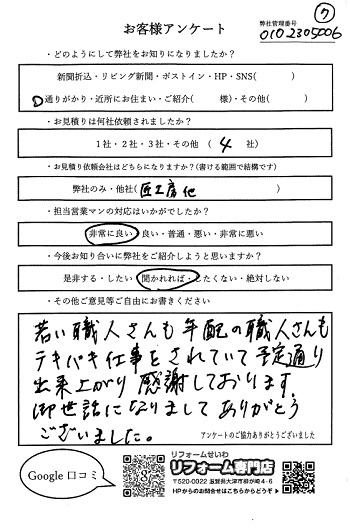 ⑦
お客様アンケート
弊社管理番号
0102305006
・どのようにして弊社をお知りになりましたか?
新聞折込・リビング新聞・ポストイン・HP・SNS( )
通りがかり・近所にお住まい・ご紹介( 様)・その他( )
・お見積りは何社依頼されましたか?
1社・2社・3社・その他 ( 4 社)
・お見積り依頼会社はどちらになりますか?(書ける範囲で結構です)
弊社のみ・他社( 匠工房 他 )
・担当営業マンの対応はいかがでしたか?
非常に良い・良い・普通・悪い・非常に悪い
・今後お知り合いに弊社をご紹介しようと思いますか?
是非する・したい・聞かれれば・したくない・絶対しない
・その他ご意見等ご自由にお書きください
若い職人さんも年配の職人さんも
テキパキ仕事をされていて予定通り
出来上がり感謝しております。
御世話になりまして ありがとう
ございました。
アンケートのご協力ありがとうございました
Google 口コミ
リフォームせいわ
リフォーム専門店
〒520-0022 滋賀県大津市柳が崎4-6
HPからのお問合せはこちらからどうぞ